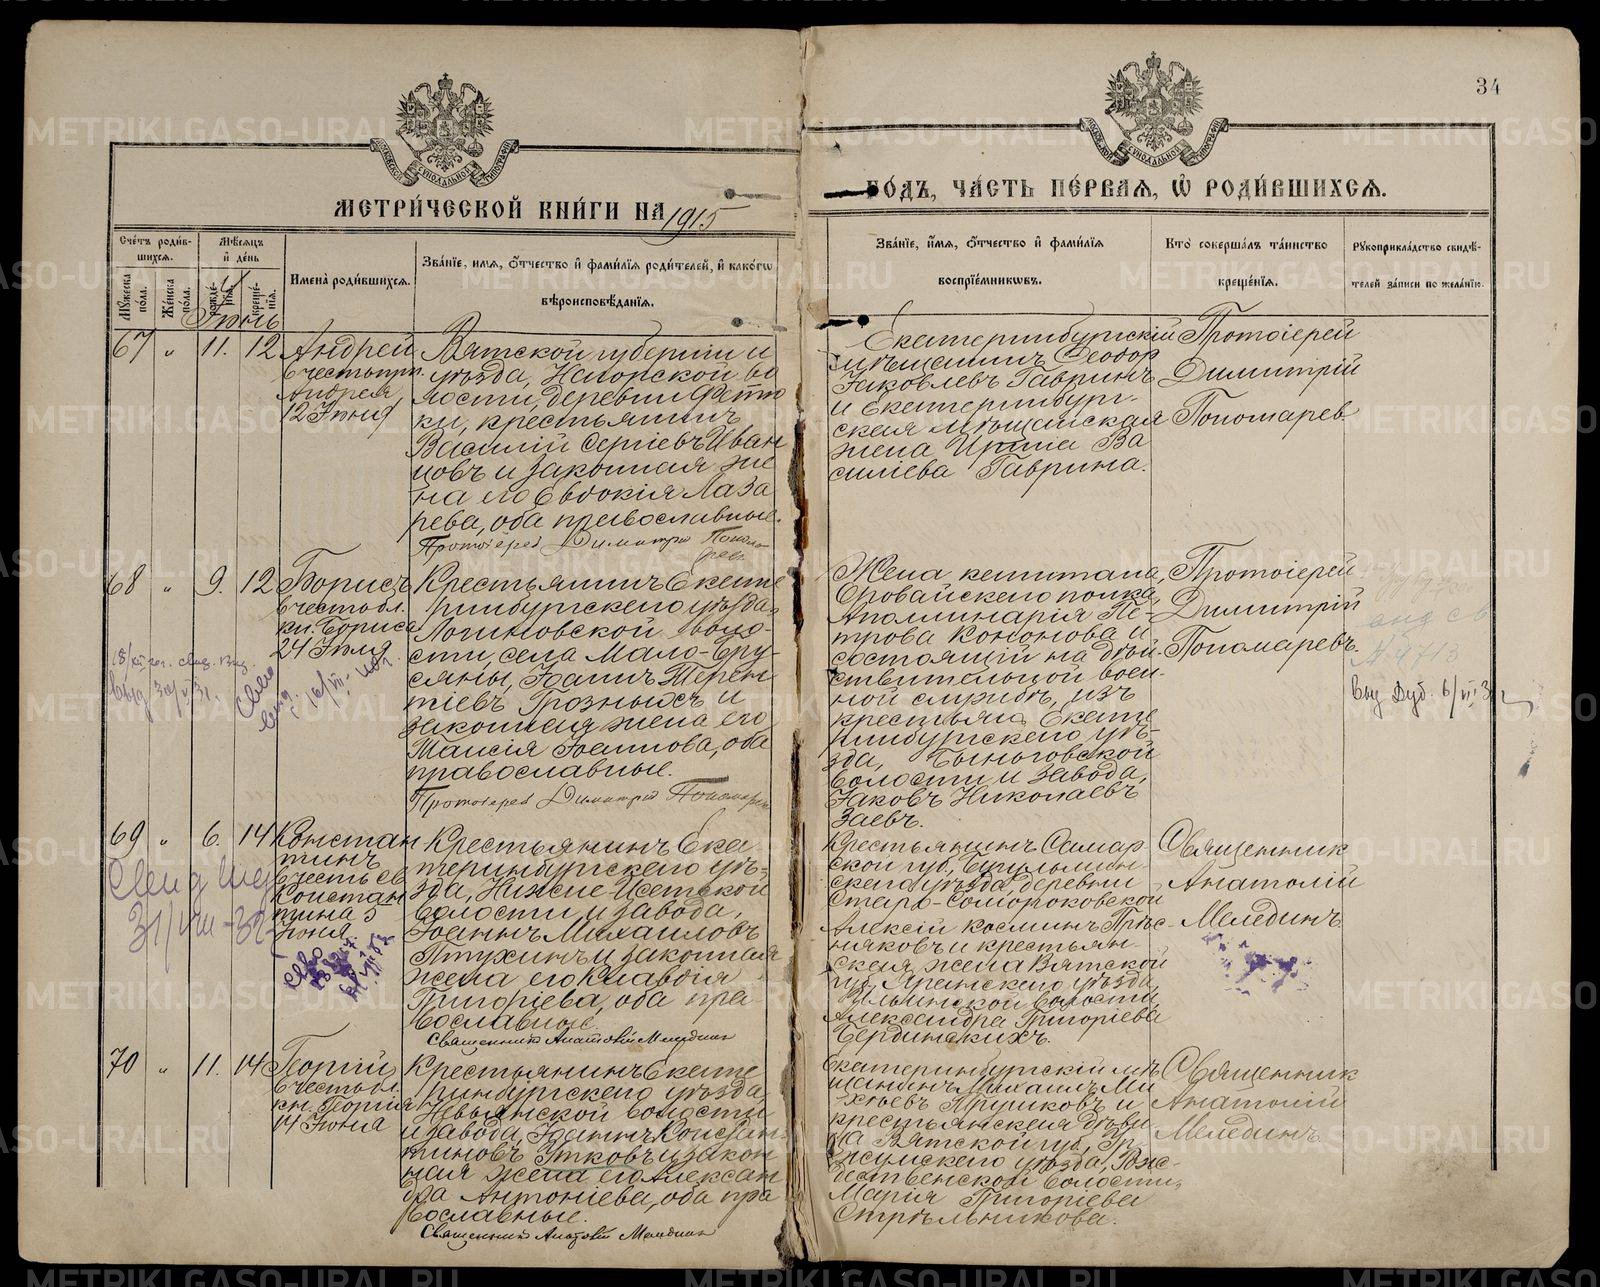 34
МЕТРИ́ЧЕСКОЙ КНИ́ГИ НА 1915
ГО́ДЪ, ЧА́СТЬ ПЕ́РВАѦ, Ѡ҆ РОДИ́ВШИХСѦ.
Сче́тъ роди́вшихсѧ.
Мужеска пола.
Же́нска пола.
Мѣ́сѧцъ и҆ де́нь
рожде́нїѧ.
креще́нїѧ.
Имена̀ роди́вшихсѧ.
Зва́нїе, имѧ, ѻ҆́тчество и҆ фами́лїѧ роди́телей, и҆ како́гѡ
вѣроисповѣ́данїѧ.
Зва́нїе, и҆́мѧ, ѻ҆́тчество и҆ фами́лїѧ
воспрїе́мникѡвъ.
Кто̀ соверша́лъ та́инство
креще́нїѧ.
Рꙋкоприкла́дство свидѣ́-
телей за́писи по жела́нїю.
Іюнь
67 „ 11. 12
Андрей
въ честь прп.
Андрея,
12 Іюня
Вятской губерніи и
уѣзда, Нагорской во
лости, деревни
ки, крестьянинъ
Василій Сергіевъ Иван
цовъ и законная же
на его Евдокія Лаза
рева, оба православные.
Протоіерей Димитрій Понома
ревъ
Екатеринбургскій
мѣщанинъ Ѳеодор
Іаковлевъ Гавринъ
и Екатеринбург-
ская мѣщанская
жена Ирина Ва
силіева Гаврина.
Протоіерей
Димитрій
Пономарев.
68 „ 9. 12
Борисъ
въ честь бл.
кн. Бориса
24 Іюля
Крестьянинъ Екате
ринбургскаго уѣзда,
Логиновской воло-
сти, села Мало-Бру-
сяны, Іоаннъ Терен
тіевъ Грозныхъ и
законная жена его
Таисія Іоаннова, оба
православные.
Протоіерей Димитрій Пономарев
Жена капитана,
Оровайскаго полка,
Аполлинарія Пе-
трова Кононова и
состоящій на дѣй-
ствительной воен-
ной службѣ, изъ
крестьянъ Екате
ринбургскаго уѣ-
зда, Быньговской
волости и завода,
Іаковъ Николаевъ
Заевъ.
Протоіерей
Димитрій
Пономаревъ.
№ 4713
выд. Дуб. 6/VI 3 г
69 „ 6. 14
Констан
тинъ
въ честь св
Констан
тина 5
Іюня.
Свид выд
31/VIII-32
Крестьянинъ Ека-
теринбургскаго уѣ-
зда, Нижне Исетской
волости и завода,
Іоаннъ Михаиловъ
Птухинъ и законная
жена его Клавдія
Григоріева, оба пра-
вославные.
Священникъ Анатолій Мелединъ
Крестьянинъ Самар
ской губ., Бугульмин-
скаго уѣзда, деревни
Старо-Сомороковской
Алексій Космин Прѣс-
няковъ и крестьян-
ская жена Вятской
губ., Яранскаго уѣзда,
Ильинской волости,
Александра Григоріева
Бердинскихъ.
Священникъ
Анатолій
Мелединъ.
70 „ 11. 14
Георгій
въ честь бл.
кн. Георгія
14 Іюня
Крестьянинъ Екате
ринбургскаго уѣзда,
Невьянской волости
и завода, Іоаннъ Констан-
тиновъ Утковъ и закон
ная жена его Алексан
дра Антоніева, оба пра
вославные.
Священникъ Анатолій Мелединъ
Екатеринбургскій мѣ
щанинъ Михаилъ Ми
хѣевъ Трушковъ и
крестьянская дѣви
ца Вятской губ., Ур-
жумскаго уѣзда, Рож-
дественской волости,
Марія Григоріева
Стрѣльникова.
Священникъ
Анатолій
Мелединъ.
METRIKI.GASO-URAL.RU